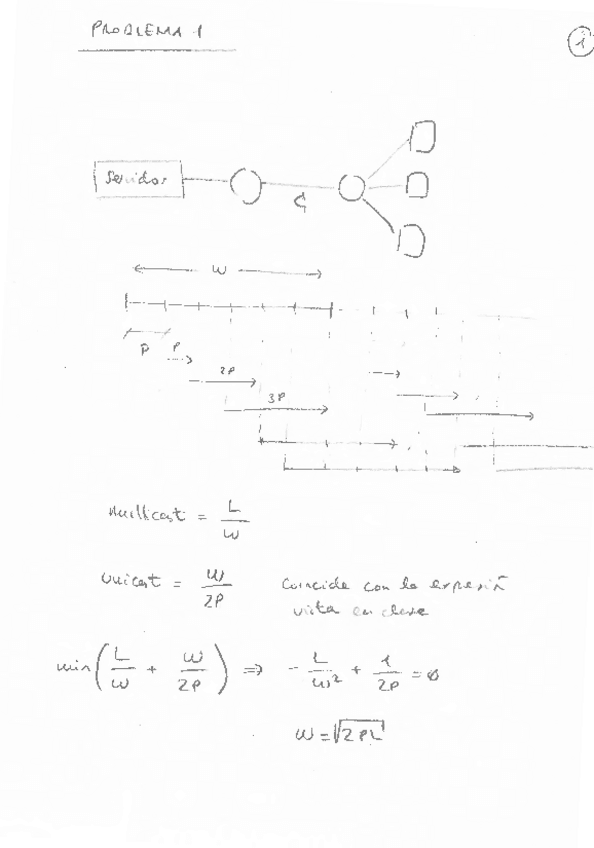 PROBLEMA 1
1
Servidor
C
W
P P
2P
3P
Multicast = L/W
Unicast = W/2P Coincide con la expresión
vista en clase
min(L/W + W/2P) => - L/W² + 1/2P = 0
W = √2PL